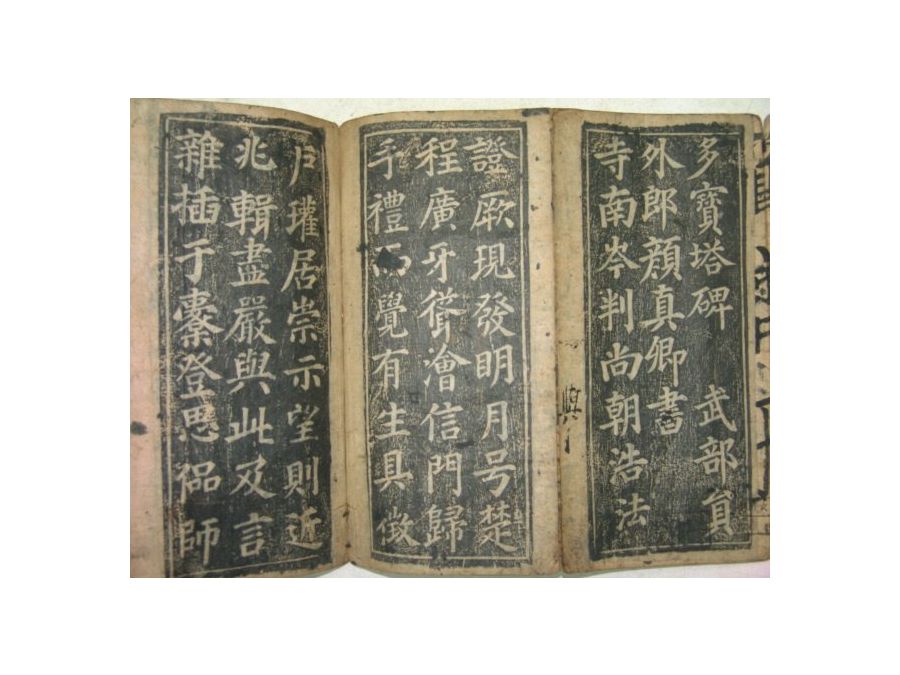 多寶塔碑 武部員
外郎顔真卿書
寺南岑判尚朝浩法
證厥現發明月号楚
程廣牙聳滄信門歸
手禮而覺有生具徴
戶瓘居崇示望則近
兆輯盡嚴與此及言
雜插于橐登思師
興